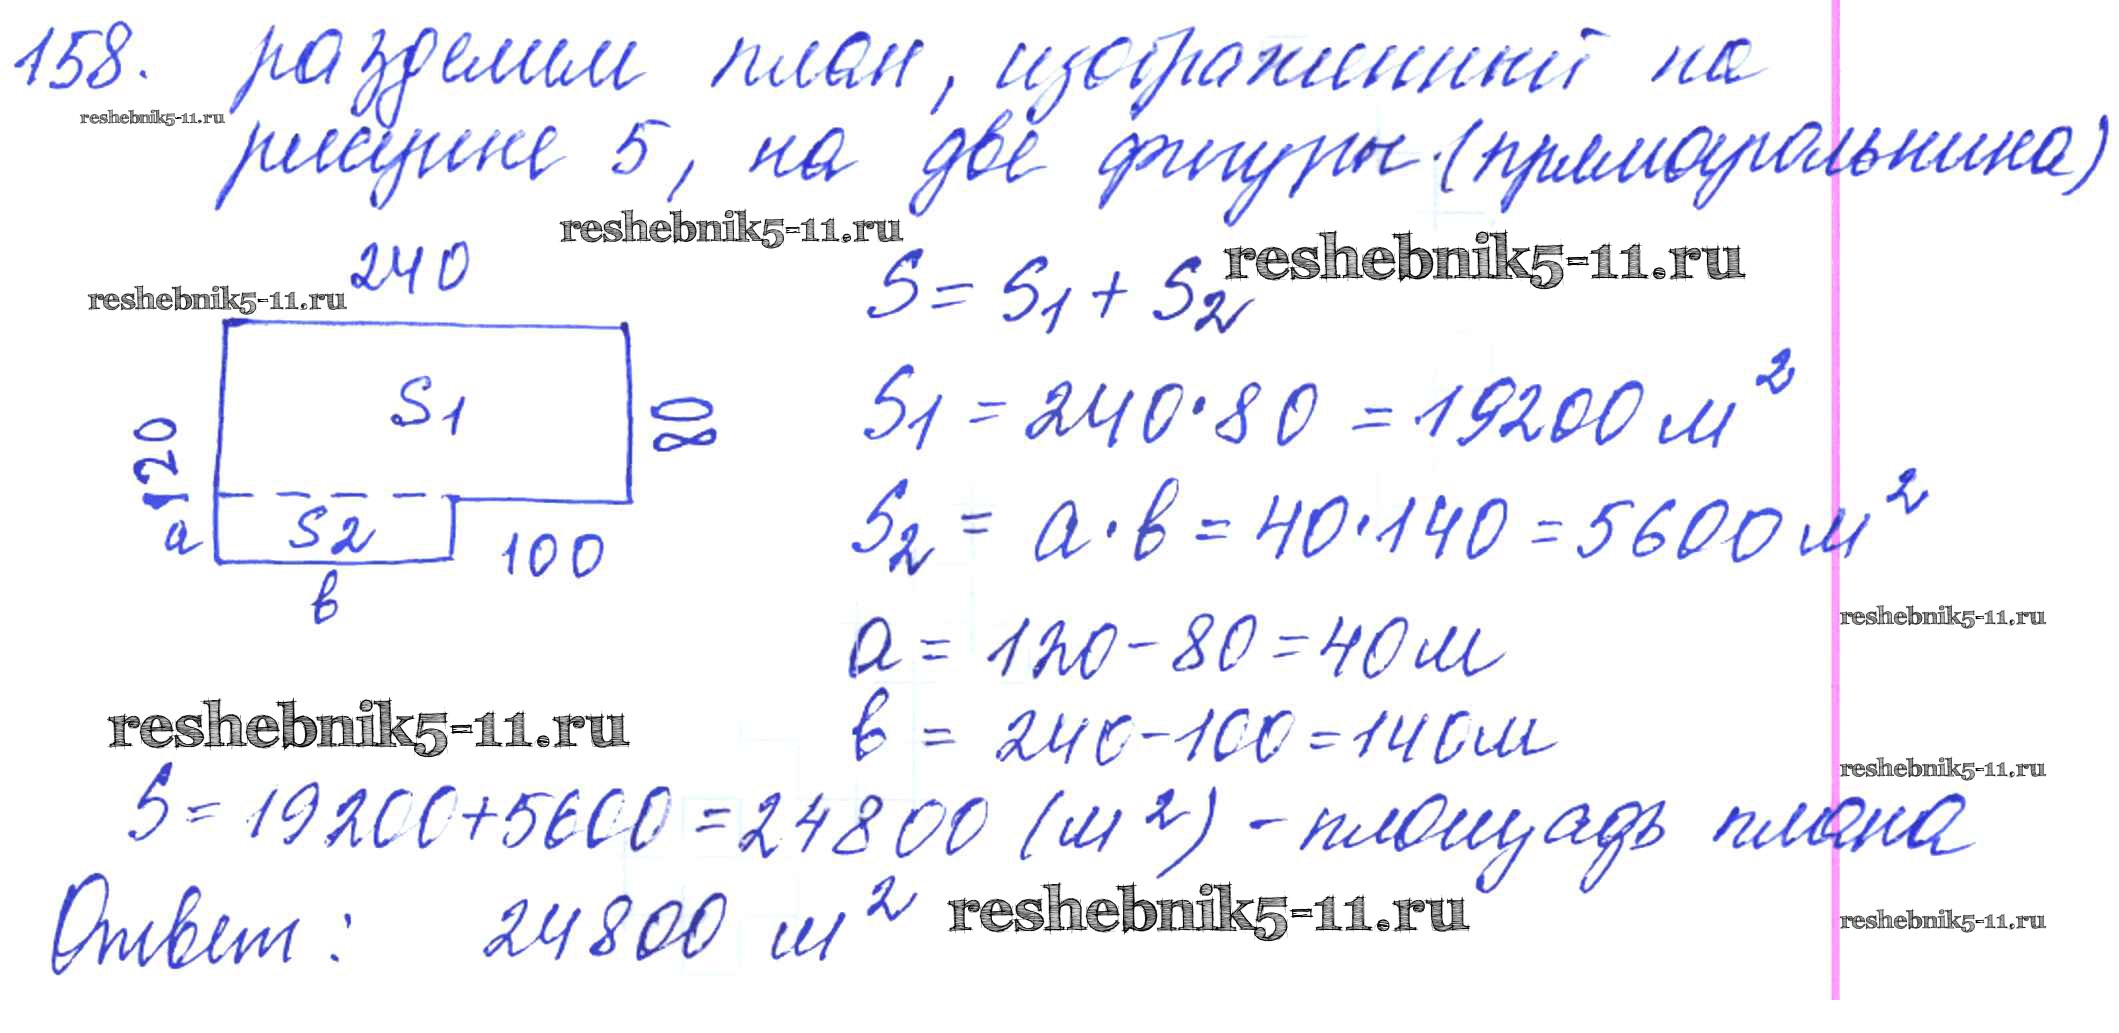 158. разделим план, изображенный на
reshebnik5-11.ru
рисунке 5, на две фигуры (прямоугольника)
reshebnik5-11.ru
reshebnik5-11.ru
240
reshebnik5-11.ru
S = S1 + S2
S1
120
80
S1 = 240·80 = 19200 м²
a
S2
100
в
S2 = a·в = 40·140 = 5600 м²
reshebnik5-11.ru
a = 120-80 = 40 м
reshebnik5-11.ru
в = 240-100 = 140 м
reshebnik5-11.ru
S = 19200+5600 = 24800 (м²) - площадь плана
Ответ: 24800 м²
reshebnik5-11.ru
reshebnik5-11.ru